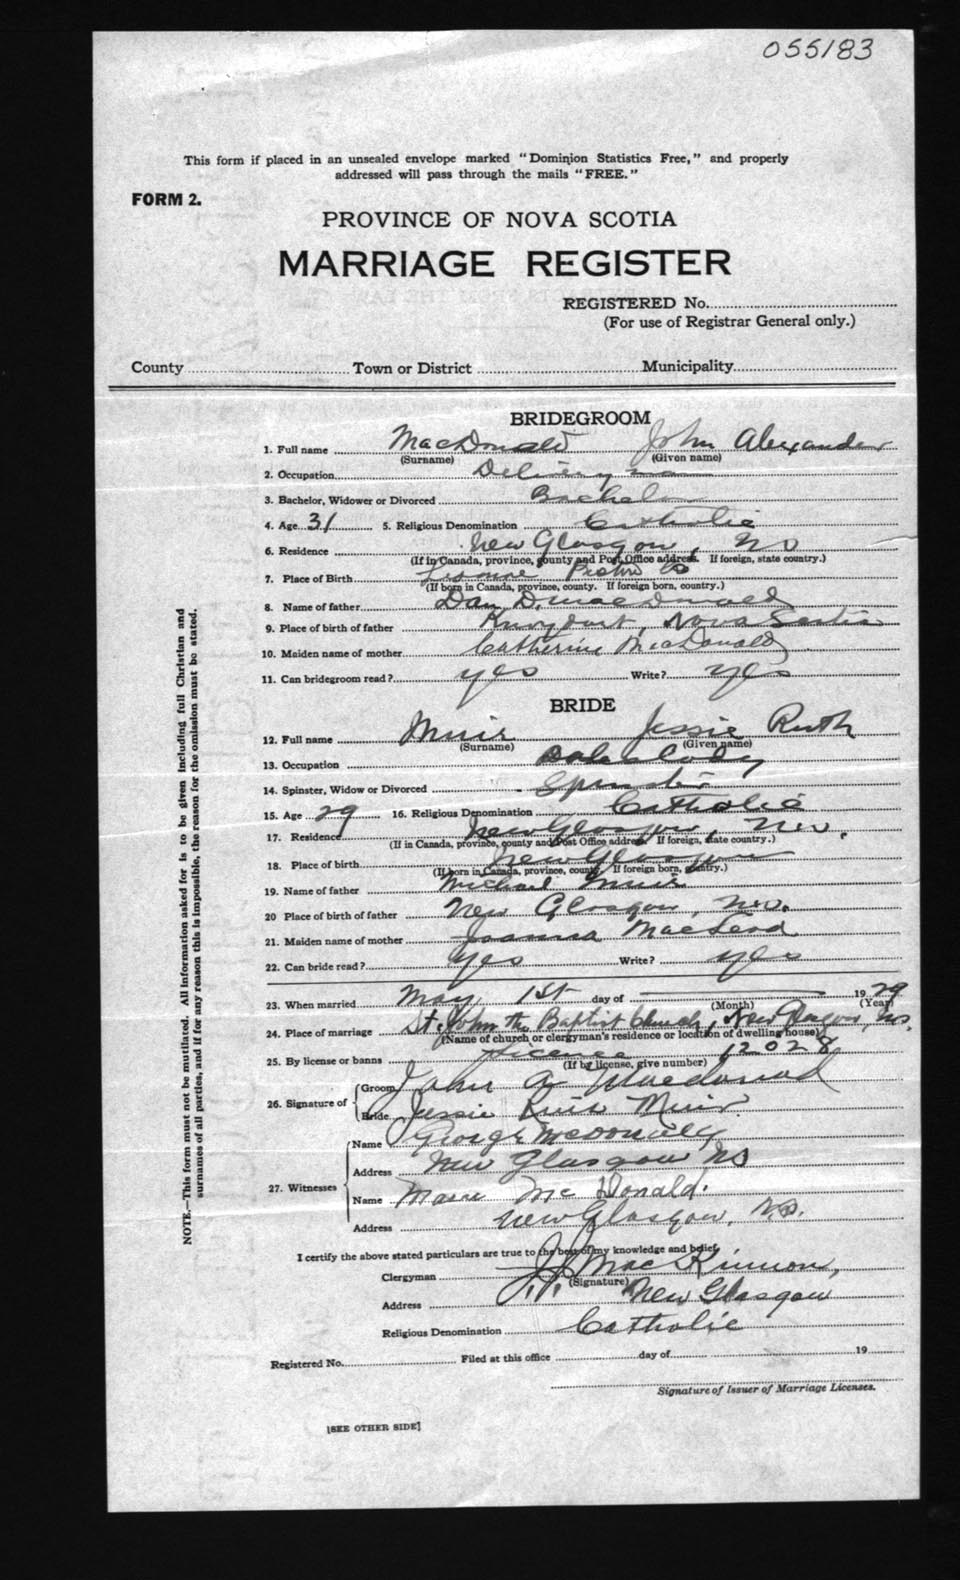 055183
This form if placed in an unsealed envelope marked "Dominion Statistics Free," and properly
addressed will pass through the mails "FREE."
FORM 2.
PROVINCE OF NOVA SCOTIA
MARRIAGE REGISTER
REGISTERED No.
(For use of Registrar General only.)
County Town or District Municipality
BRIDEGROOM
1. Full name MacDonald John Alexander
(Surname) (Given name)
2. Occupation Delivery man
3. Bachelor, Widower or Divorced Bachelor
4. Age 31 5. Religious Denomination Catholic
6. Residence New Glasgow, NS
(If in Canada, province, county and Post Office address. If foreign, state country.)
7. Place of Birth Lismore Pictou Co
(If born in Canada, province, county. If foreign born, country.)
8. Name of father Dan D. MacDonald
9. Place of birth of father Knoydart, Nova Scotia
10. Maiden name of mother Catherine MacDonald
11. Can bridegroom read? yes Write? yes
BRIDE
12. Full name Muir Jessie Ruth
(Surname) (Given name)
13. Occupation Saleslady
14. Spinster, Widow or Divorced Spinster
15. Age 29 16. Religious Denomination Catholic
17. Residence New Glasgow, N.S.
(If in Canada, province, county and Post Office address. If foreign, state country.)
18. Place of birth New Glasgow
(If born in Canada, province, county. If foreign born, country.)
19. Name of father Michael Muir
20 Place of birth of father New Glasgow, N.S.
21. Maiden name of mother Joanna MacLeod
22. Can bride read? yes Write? yes
23. When married May 1st day of 1929
(Month) (Year)
24. Place of marriage St. John the Baptist Church, New Glasgow, N.S.
(Name of church or clergyman's residence or location of dwelling house)
25. By license or banns Licence 12028
(If by license, give number)
26. Signature of Groom John A Macdonald
Bride Jessie Ruth Muir.
27. Witnesses Name George McDonald
Address New Glasgow NS
Name Marie McDonald.
Address New Glasgow, N.S.
I certify the above stated particulars are true to the best of my knowledge and belief.
Clergyman MacKinnon,
(Signature)
Address New Glasgow
Religious Denomination Catholic
Registered No. Filed at this office day of 19
Signature of Issuer of Marriage Licenses.
[SEE OTHER SIDE]
NOTE.—This form must not be mutilated. All information asked for is to be given including full Christian and
surnames of all parties, and if for any reason this is impossible, the reason for the omission must be stated.